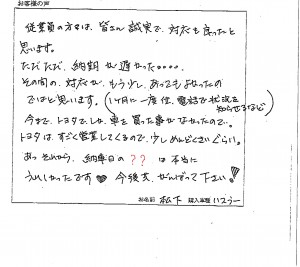 お客様の声
従業員の方々は、皆さん誠実で、対応も良かったと
思います。
ただただ、納期が遅かった・・・・
その間の、対応が、もう少しあってもよかったの
ではと思います。(1ケ月に一度位、電話で状況を
知らせるなど)
今まで、トヨタでしか、車を買った事がなかったので、
トヨタは、すごく営業してくるので、少しめんどくさいぐらい。
あっ それから、納車日の ?? は 本当に
うれしかったです♥ 今後共、がんばって下さい!!
お名前 松下 購入車種